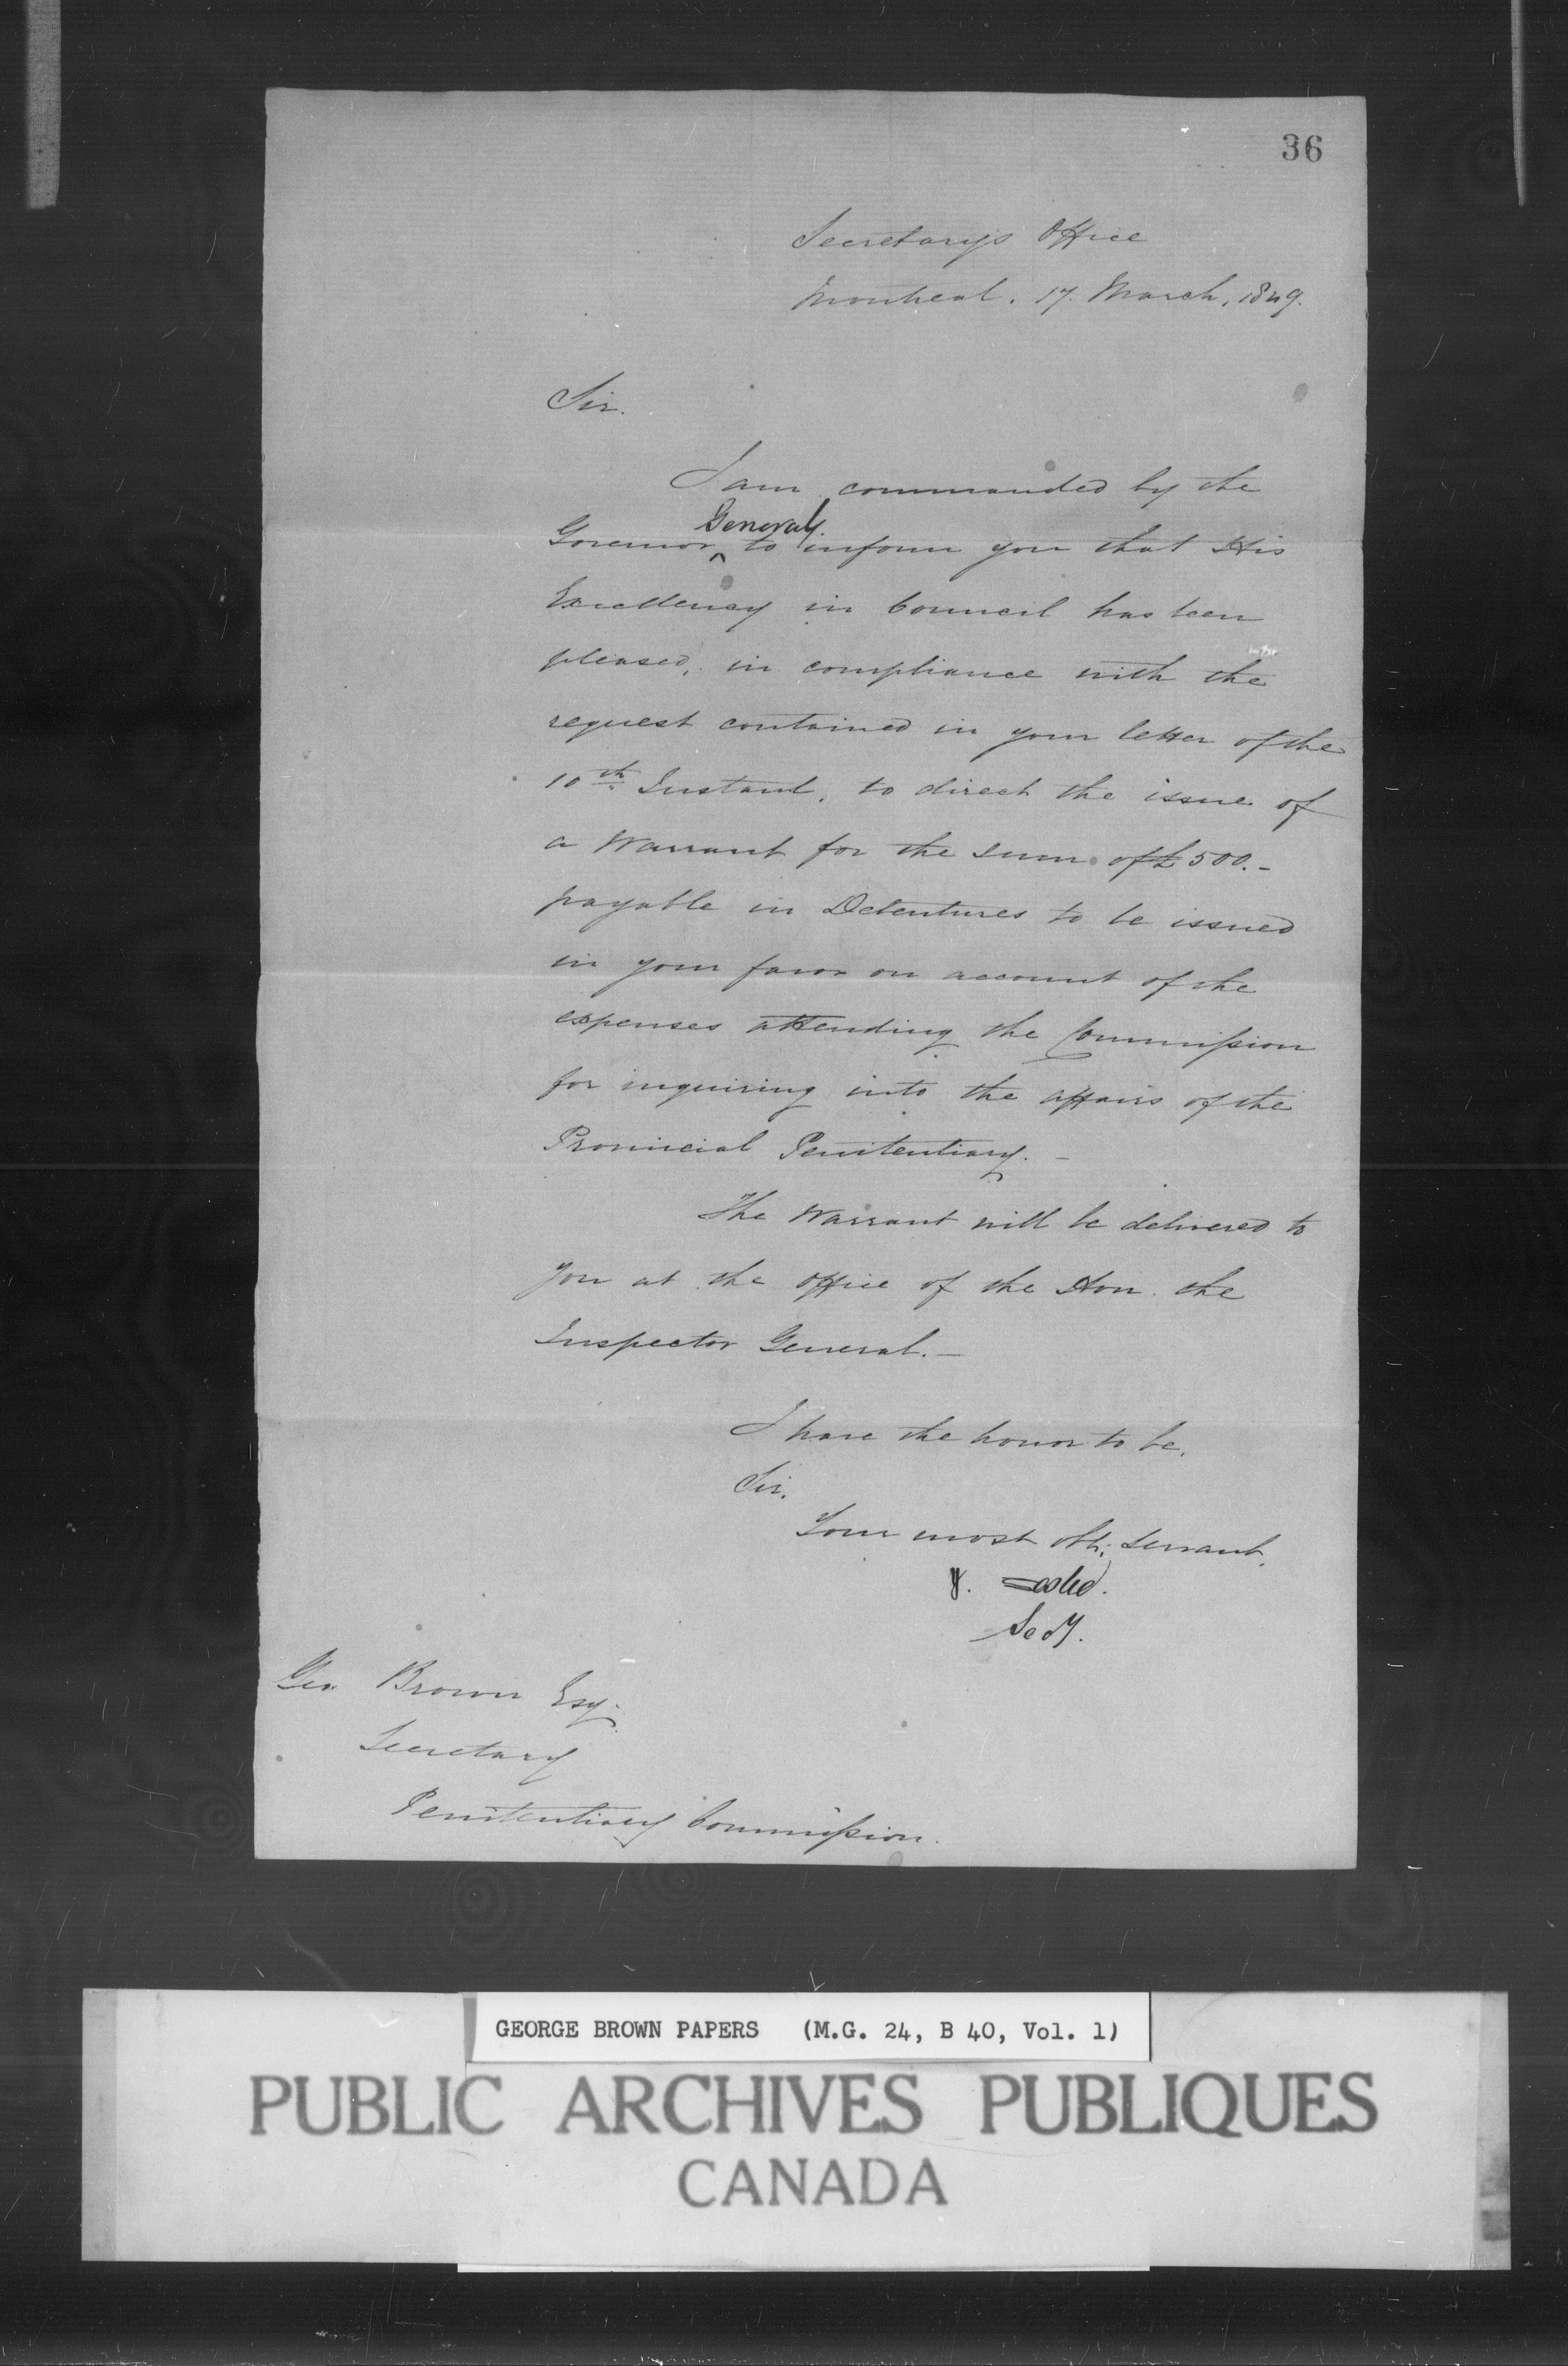 36
Secretary's Office
Montreal. 17. March, 1849.
Sir.
I am commanded by the
General
Governor ^ to inform you that His
Excellency in Council has been
pleased, in compliance with the
request contained in your letter of the
10th Instant, to direct the issue of
a Warrant for the sum of £500.-
payable in Debentures to be issued
in your favor on account of the
expenses attending the Commission
for inquiring into the affairs of the
Provincial Penitentiary. -
The Warrant will be delivered to
you at the office of the Hon. the
Inspector General. -
I have the honor to be,
Sir,
Your most obt. servant,
Leslie.
Secy.
Geo Brown Esq.
Secretary
Penitentiary Commission.
GEORGE BROWN PAPERS (M.G. 24, B 40, Vol. 1)
PUBLIC ARCHIVES PUBLIQUES
CANADA